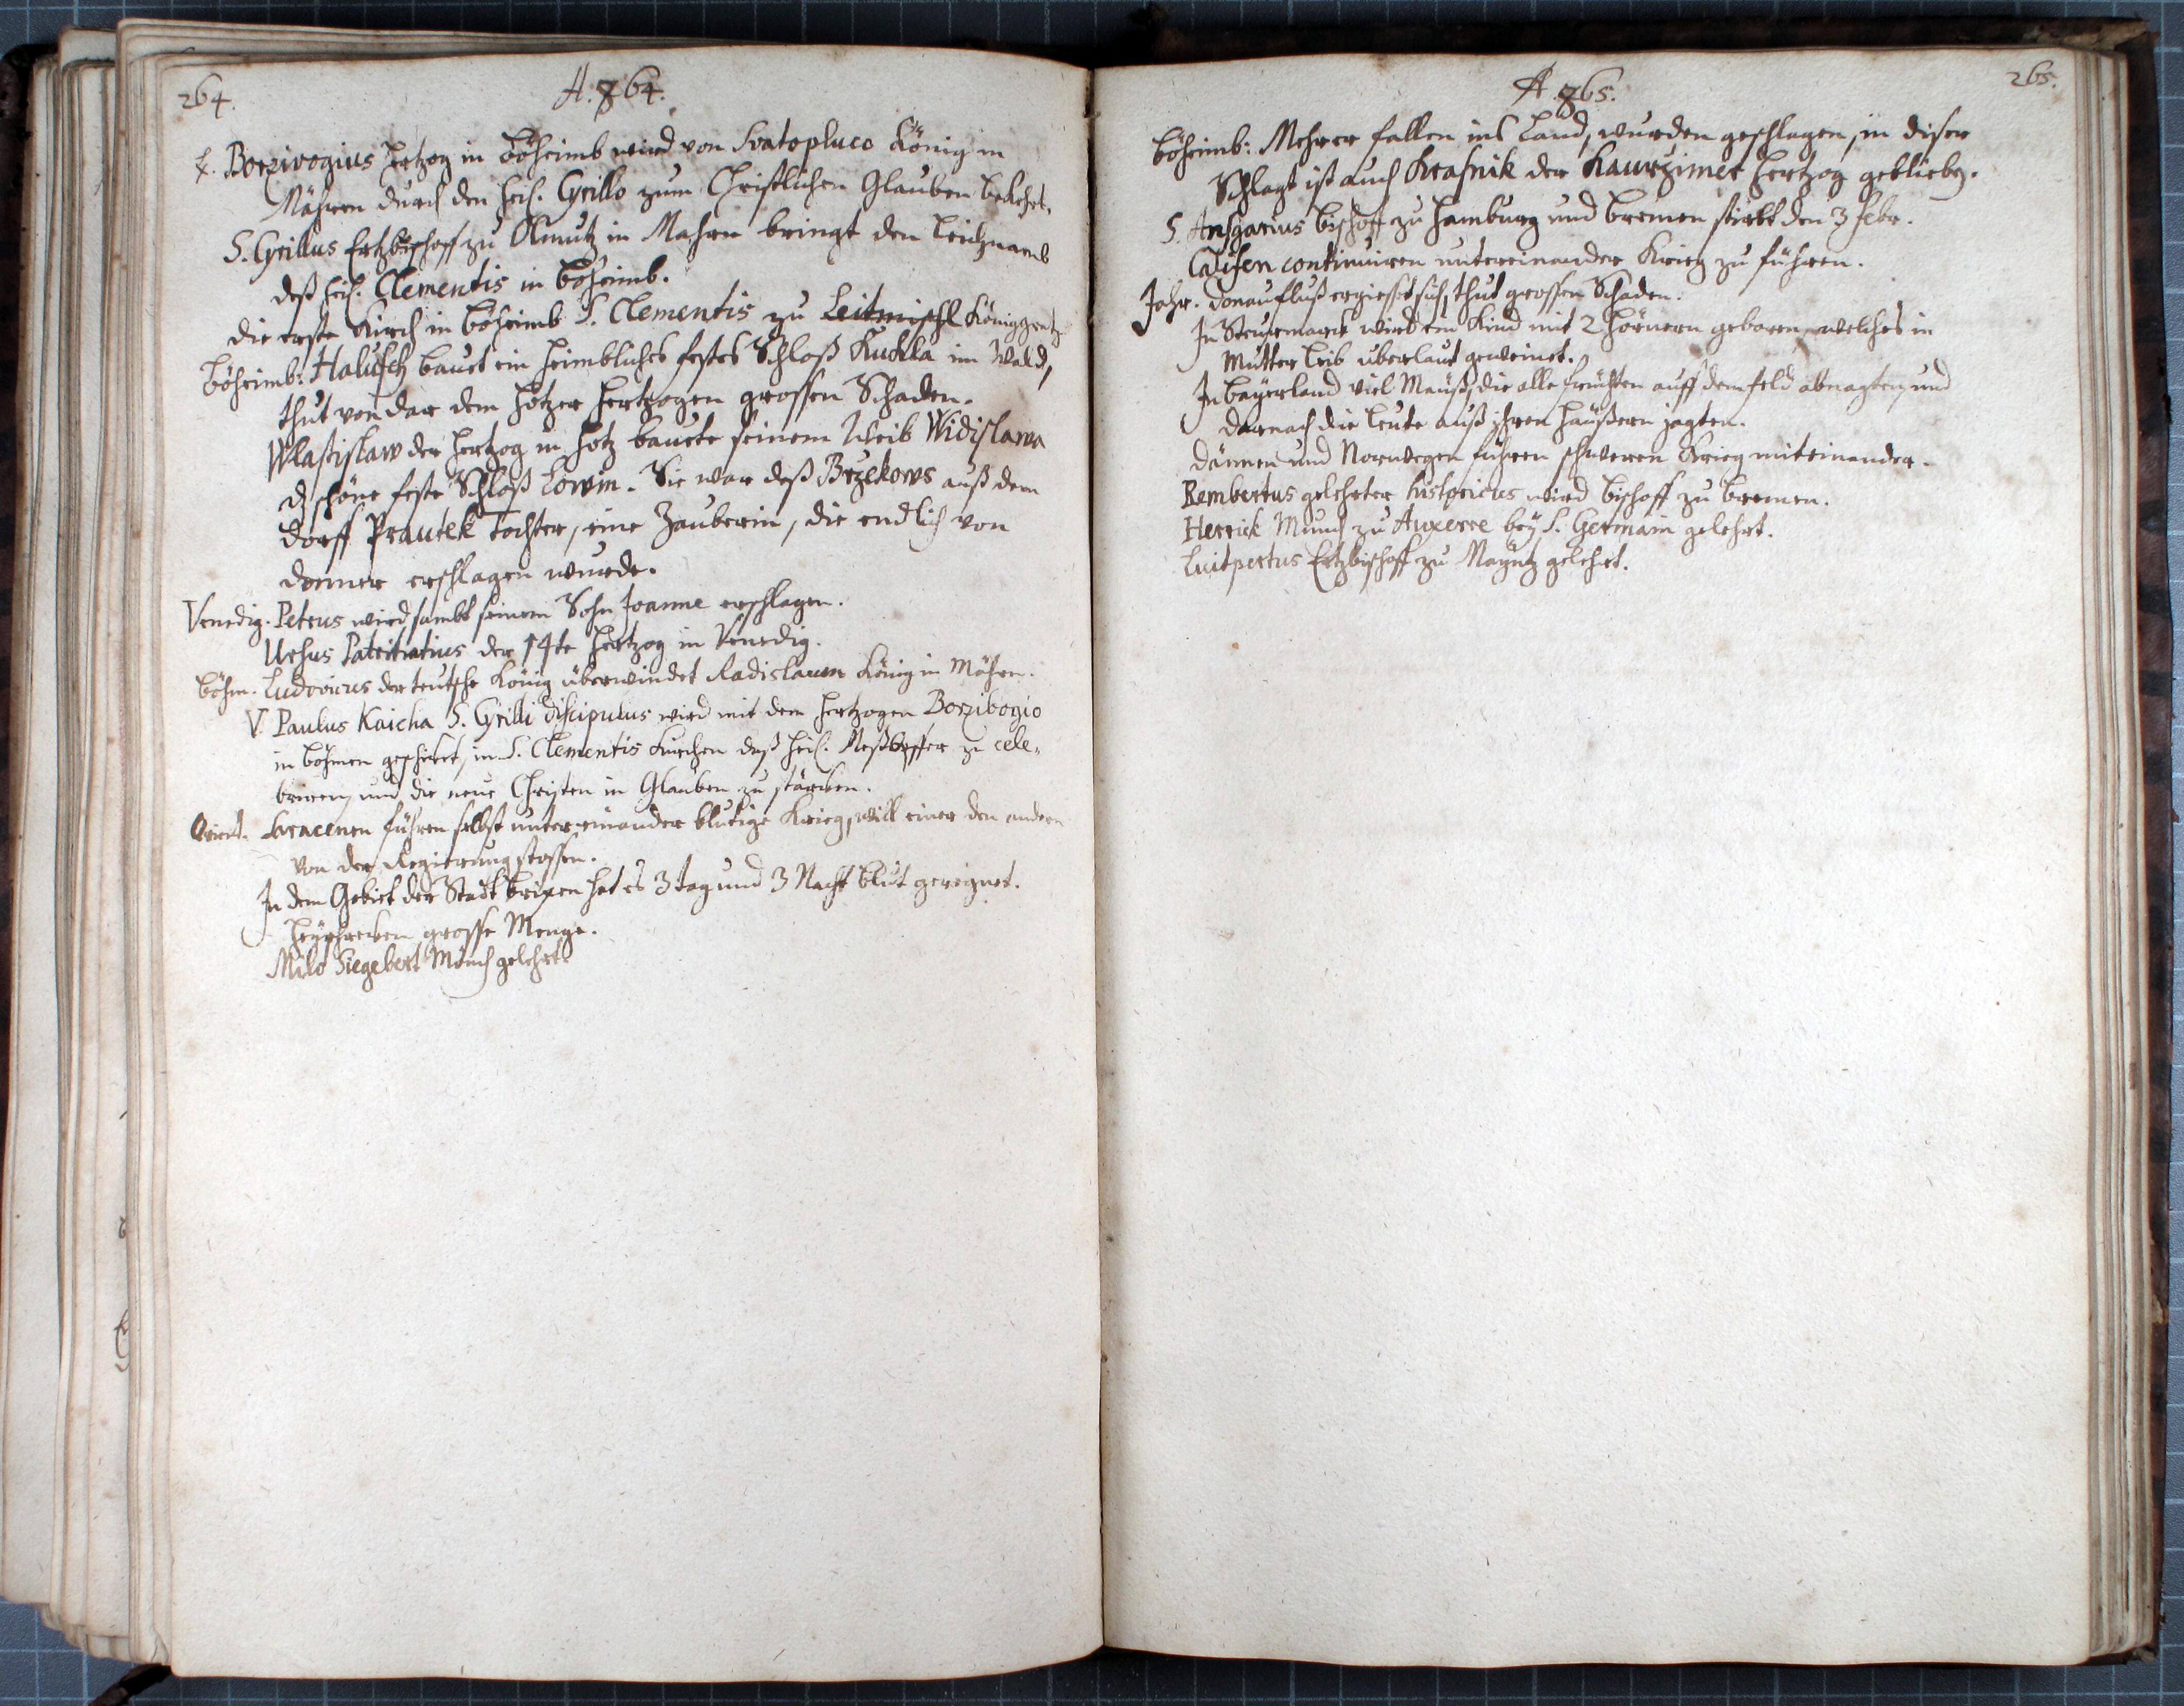 264.
A. 864.
E. Borzivogius Hertzog in Böheimb wird von Svatopluco König in
Mähren durch den Heil. Cyrillo zum Christlichen Glauben bekehrt.
S. Cyrillus Ertzbischoff zu Olmutz in Mahren bringt den Leichnamb
deß Heil. Clementis in Böheimb.
Die erste Kirch in Böheimb S. Clementis zu Leitmischl Königgretz
Böheimb: Halusch bauet ein heimbliches festes Schloß Kuckla im Wald,
thut von dar dem Hotzer Hertzogen grossen Schaden.
Wlastislaw der Hertzog in Hotz bauete seinem Weib Widislawa
dz schöne feste Schloß Lowin. Sie war deß Brzekows auß dem
Dorff Prautek Tochter, eine Zauberin, die endlich von
Donner erschlagen wurde.
Venedig. Petrus wird sambt seinem Sohn Joanne erschlagen.
Ursus Patritiatius der 14te Hertzog in Venedig.
Böhm. Ludovicus der teutsche König überwindet Radislaum König in Mähren.
V. Paulus Kaicha S. Cyrilli discipulus wird mit dem Hertzogen Borzibogio
in Böhmen geschickt, in S. Clementis Kirchen daß Heil. Meßopffer zu cele-
briren, und die neue Christen in Glauben zu stärcken.
Orient. Saracenen führen selbst untereinander blutige Krieg, will einer den andern
von der Regierung stossen.
In dem Gebiet der Stadt Brixen hat es 3 Tag und 3 Nacht Blut geregnet.
Heyschrecken grosse Menge.
Milo Siegebert Münch gelehrt.
A. 865.
265.
Böheimb: Mehrer fallen ins Land, wurden geschlagen, in diser
Schlagt ist auch Krasnik der Kaurzimer Hertzog gebliebe.
S. Ansgarius Bischoff zu Hamburg und Bremen stirbt den 3 Febr.
Califen continuiren untereinander Krieg zu führen.
Jahr. Donaufluß ergiesset sich, thut grossen Schaden.
In Steyrmarck wird ein Kind mit 2 Hörnern geboren, welches in
Mutter Leib uberlaut geweinet.
In Bayerland viel Mäuß, die alle Früchten auff dem Feld abnagten, und
darnach die Leute auß ihren Häußern jagten.
Dännen und Norwegen führen schweren Krieg miteinander.
Rembertus gelehrter historicus wird Bischoff zu Bremen.
Herrick Münch zu Auxerre bey S. Germain gelehrt.
Luitpertus Ertzbischoff zu Mayntz gelehrt.